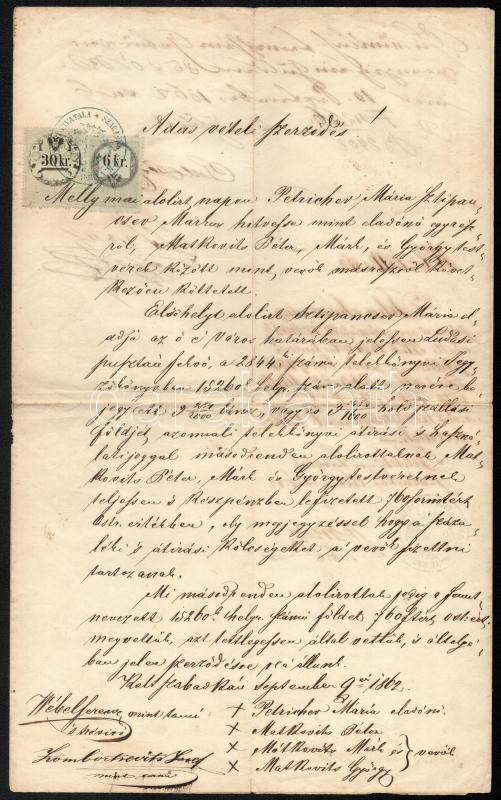 Adás vételi szerződés!
30 kr.
6 kr.
Melly mai alolirt napon Petrichev Mária Sztipan-
csev Markus hitvesse mint eladónő egyrész-
ről, Matkovits Péter, Márk, és György test-
verek között mint, vevők másreszről követ-
kezően köttetett.
Elsőhelyt alolirt Sztipancsev Mária el-
adja az ő e Város határában jelessen Ludasi
pusztán fekvő, a 2844 ik számú telekkönyvi Jegy-
zőkönyvben 15260 helyr. szám alatt nevére be-
jegyzett 3 lancz, vagyis 3 hold szállási
földjét azonnali telekkönyvi átirási s haszná-
lati joggal másodrenden alolirottaknak, Mat-
kovits Péter, Márk és György testvereknek
teljessen s készpénzben lefizetett 760 forintért
Ostr. értékben, oly megjegyzéssel hogy a száza-
léki s átirási költségeket a' vevők fizettni
tartoznak.
Mi másodrenden alolirottak pedig a fennt
nevezett 15260 helyr. számú földet 760 ftért ostr. ért.
megvettük, azt tettlegessen által vettük, s általyá-
ban jelen szerződésre reá állunk.
Kelt Szabadkán september 9 én 1862.
Wébel Ferencz mint tanú
+ Petrichev Mária eladónő.
+ Matkovits Péter
+ Mátkovits Márk és } vevők
mint tanú
+ Matkovits György